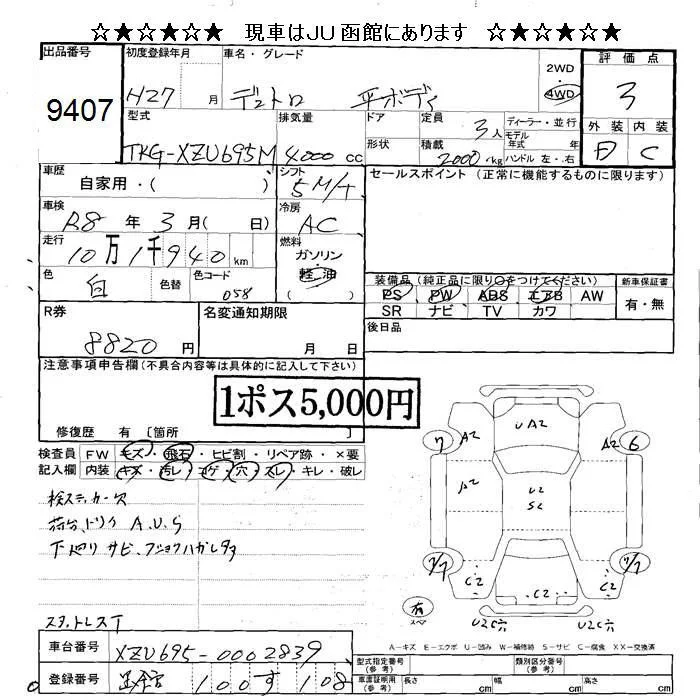 ☆★☆★☆★ 現車はJU函館にあります ☆★☆★☆★
出品番号 初度登録年月 車名・グレード 評価点
9407 H27 月 デュトロ 平ボディ 2WD 4WD 3
型式 排気量 ドア 定員 3人 ディーラー・並行 外装 内装
モデル年式 年
TKG-XZU695M 4000cc 形状 積載 2000kg ハンドル 左・右 D C
車歴 シフト セールスポイント (正常に機能するものに限ります)
自家用・( ) 5M/T
車検 冷房
R8年 3月( 日) AC
走行 燃料
10万1千940km ガソリン
色 色替 色コード 軽油
白 058 ( )
装備品 (純正品に限り○をつけてください) 新車保証書
PS PW ABS エアB AW 有・無
SR ナビ TV カワ
R券 名変通知期限 後日品
8820円 月 日
注意事項申告欄 (不具合内容等は具体的に記入して下さい)
1ポス5,000円
修復歴 有 〔箇所 〕
検査員 FW キズ・飛石・ヒビ割・リペア跡・×要
記入欄 内装 キズ・汚レ・コゲ・穴・スレ・キレ・破レ
検ステッカー欠
荷台、トリイ A、U、S
下廻り サビ、フショクハガレタメ
スタットレスT
UA2
7 A2 A2 6
A2 U2
S2
7/7 7/7
C2 C2 C2
有
スペア U2C穴 U2C穴
A-キズ E-エクボ U-凹み W-補修跡 S-サビ C-腐食 XX-交換済
車台番号 XZU695-0002839
登録番号 函館 100 す 108
型式指定番号 (参考) 類別区分番号 (参考)
車庫証明用 (参考) 長さ cm 幅 cm 高さ cm